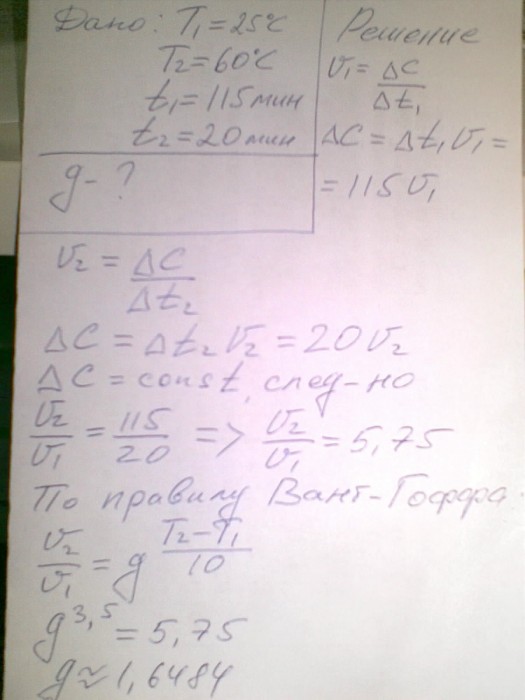 Дано: T₁=25°C
T₂=60°C
t₁=115 мин
t₂=20 мин
g-?
Решение
v₁=ΔC/Δt₁
ΔC=Δt₁v₁=
=115v₁
v₂=ΔC/Δt₂
ΔC=Δt₂v₂=20v₂
ΔC=const, след-но
v₂/v₁=115/20 => v₂/v₁=5,75
По правилу Вант-Гоффа
v₂/v₁=g^((T₂-T₁)/10)
g^3,5=5,75
g≈1,6484